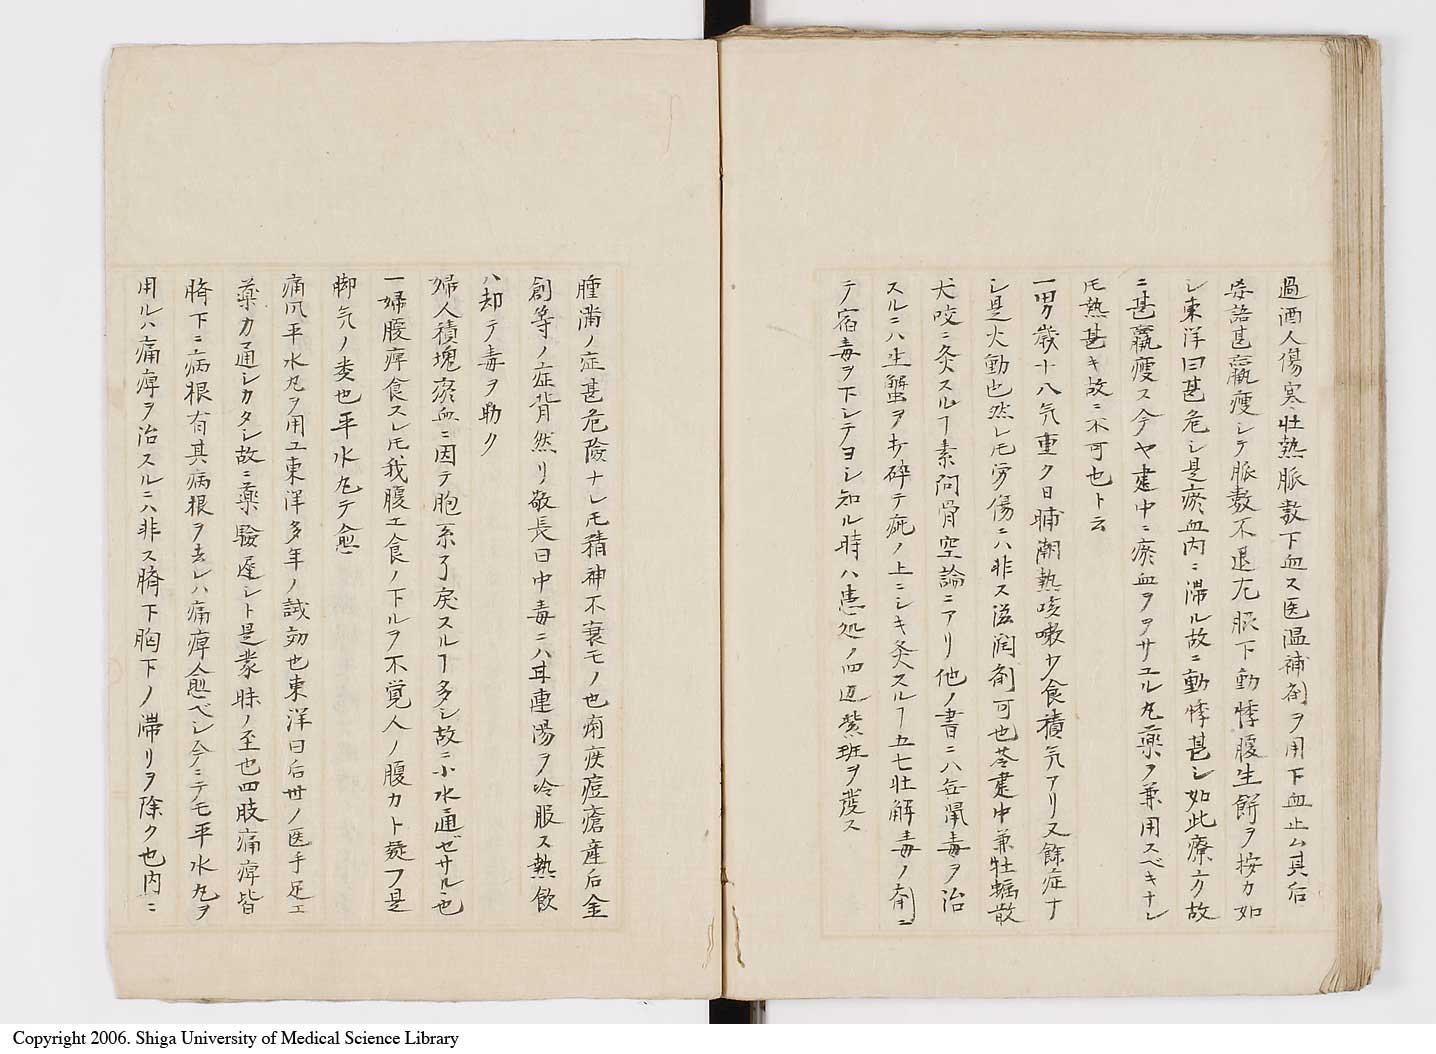 過酒人傷寒壮熱脈数下血ス医温補剤ヲ用下血止ム其后
妄語甚羸痩シテ脈数不退左脈下動悸腹生餅ヲ按カ如
シ東洋曰甚危シ是瘀血内ニ滞ル故ニ動悸甚シ如此療方故
ニ甚羸痩ス今ヤ建中ニ瘀血ヲヲサエル丸薬ヲ兼用スベキナレ
𪜈熱甚キ故ニ不可也ト云
一男歳十八気重ク日晡潮熱咳嗽少食積気アリ又餘症ナ
シ是火動也然レ𪜈労傷ニハ非ス滋潤剤可也苓建中兼牡蠣散
犬咬ニ灸スルヿ素問骨空論ニアリ他ノ書ニハ無鼠毒ヲ治
スルニハ生蟹ヲ打碎テ疵ノ上ニシキ灸スルヿ五七壮解毒ノ剤ニ
テ宿毒ヲ下シテヨシ知ル時ハ患処ノ四辺紫班ヲ発ス
腫満ノ症甚危険ナレ𪜈精神不衰モノ也痢疾痘瘡産后金
創等ノ症背然リ敬長曰中毒ニハ耳連湯ヲ冷服ス熱飲
ハ却テ毒ヲ助ク
婦人積塊瘀血ニ因テ胞系了戻スルヿ多シ故ニ小水通ゼサル也
一婦腹痺食スレ𪜈我腹エ食ノ下ルヲ不覚人ノ腹カト疑フ是
脚気ノ委也平水丸テ愈
痛風平水丸ヲ用ユ東洋多年ノ試効也東洋曰后世ノ医手足エ
薬力通シカタシ故ニ薬験遅シト是蒙昧ノ至也四肢痛痺皆
臍下ニ病根有其病根ヲ去レハ痛痺愈ベシ今ニテモ平水丸ヲ
用ルハ痛痺ヲ治スルニハ非ス臍下胸下ノ滞リヲ除ク也内ニ
Copyright 2006. Shiga University of Medical Science Library